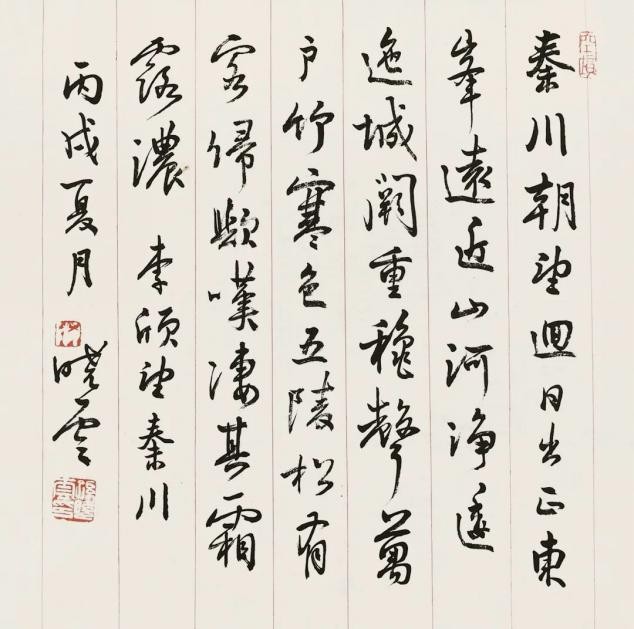 秦川朝望迴日出正東
峯遠近山河淨逶
迤城闕重穐聲萬
戶竹寒色五陵松有
客歸歟嘆淒其霜
露濃 李頎望秦川
丙戌夏月 曉雲